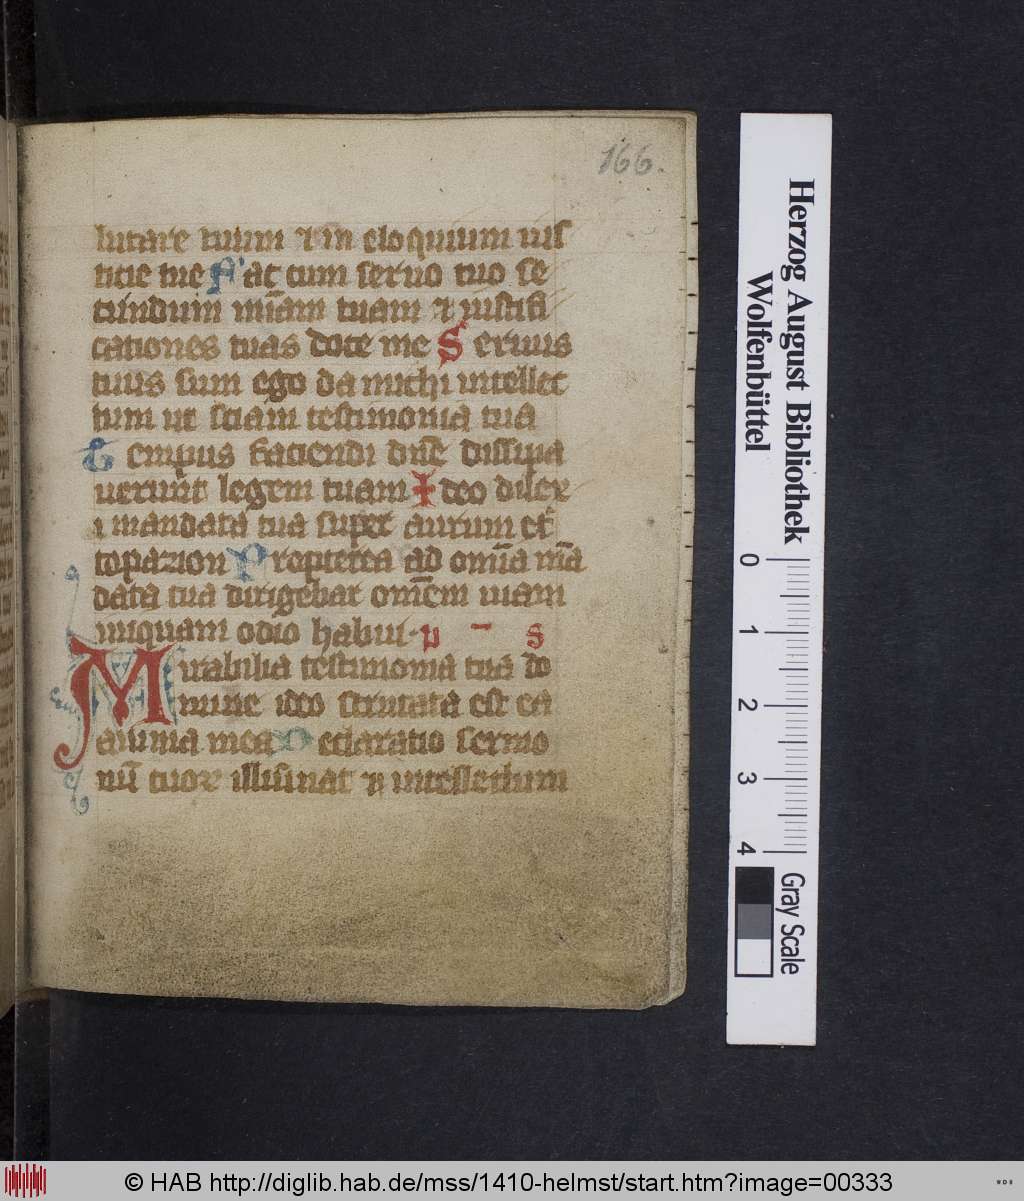 166.
lutare tuum ⁊ in eloquium ius
ticie tue Fac cum seruo tuo se
cundum mi̅am tuam ⁊ iustifi
cationes tuas doce me Seruus
tuus sum ego da michi intellec
tum ut sciam testimonia tua
Tempus faciendi dn̅e dissipa
uerunt legem tuam Ideo dilex
i mandata tua super aurum et
topazion Propterea ad om̅ia ma̅
data tua dirigebar om̅em uiam
iniquam odio habui p ‾ s
Mirabilia testimonia tua do
mine ideo scrutata est ea
anima mea Declaratio sermo
nu̅ tuor illuminat ⁊ intellectum
Herzog August Bibliothek
Wolfenbüttel
0 1 2 3 4
Gray Scale
© HAB http://diglib.hab.de/mss/1410-helmst/start.htm?image=00333